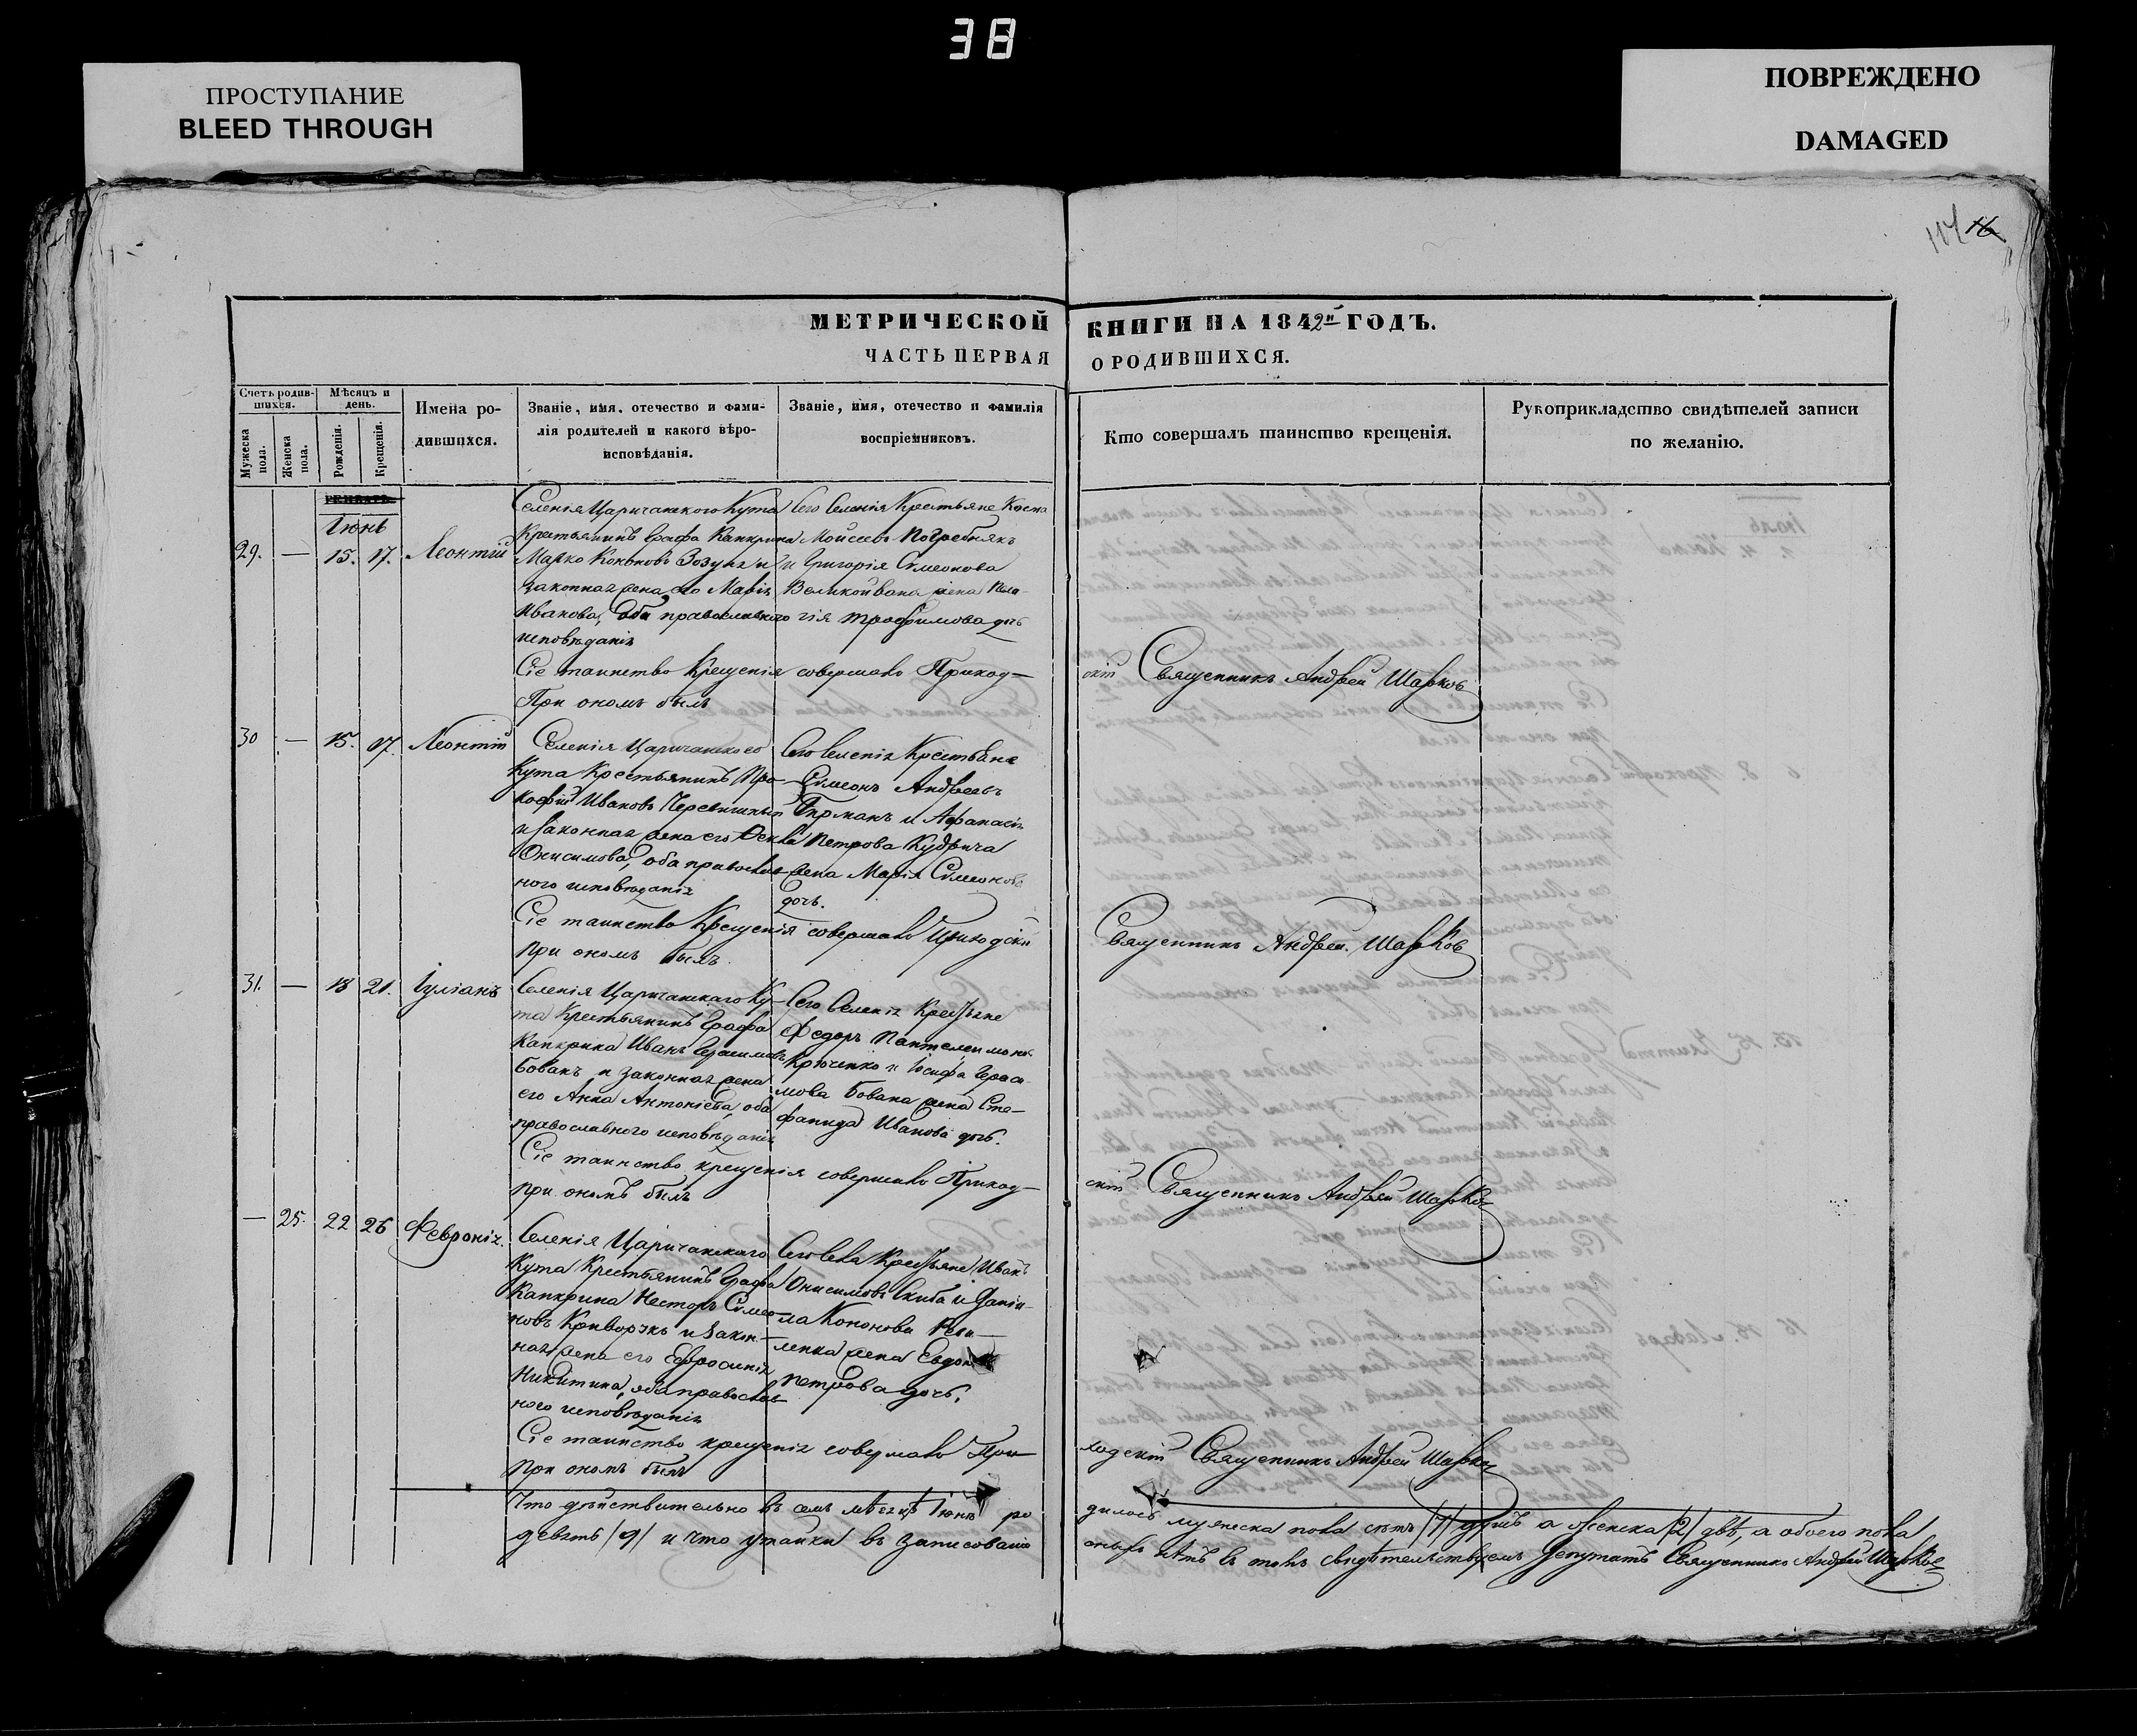 38
ПРОСТУПАНИЕ
BLEED THROUGH
ПОВРЕЖДЕНО
DAMAGED
16
МЕТРИЧЕСКОЙ КНИГИ НА 1842й ГОДЪ.
ЧАСТЬ ПЕРВАЯ О РОДИВШИХСЯ.
Счетъ родив-
шихся.
Мужеска пола.
Женска пола.
Мѣсяцъ и
день.
Рожденія.
Крещенія.
Имена ро-
дившихся.
Званіе, имя, отечество и фами-
лія родителей и какого вѣро-
исповѣданія.
Званіе, имя, отечество и фамилія
воспріемниковъ.
Кто совершалъ таинство крещенія.
Рукоприкладство свидѣтелей записи
по желанію.
Іюнь
29. — 15. 17. Леонтій
Селенія Царичанского Кута
Крестьянинъ Графа Канкрина
Марко Кононовъ Зозуля и
законная жена его Марія
Иванова, оба православного
исповѣданія
Сего Селенія Крестьяне Косма
Мойсеевъ Погребнякъ
и Григорія Симеонова
жена Пела-
гія Трофимова дочь
Сіе таинство Крещенія совершалъ Приход-
скій Священникъ Андрей Шарковъ
При ономъ былъ
30 — 15. 17. Леонтій
Селенія Царичанского
Кута Крестьянинъ Про-
кофій Ивановъ
и законная жена его
Онисимова, оба православ-
ного исповѣданія
Сего Селенія Крестьяне
Симеонъ Андреевъ
и Афанасія
Петрова Кудрича
жена Марія Симеонова
дочь.
Сіе таинство Крещенія совершалъ Приходскій
Священникъ Андрей Шарковъ
при ономъ былъ
31. — 18 21. Іуліанъ
Селенія Царичанскаго Ку-
та Крестьянинъ Графа
Канкрина Иванъ Герасимовъ
Бованъ и законная жена
его Анна Антоніева, оба
православного исповѣданія
Сего Селенія Крестьяне
Федоръ Пантелеимоновъ
Крюченко и Іосифа Гераси-
мова Бована жена Сте-
фанида Иванова дочь.
Сіе таинство крещенія совершалъ Приход-
скій Священникъ Андрей Шарковъ
при ономъ былъ
— 25. 22 26 Февронія.
Селенія Царичанского
Кута Крестьянинъ Графа
Канкрина Несторъ Симео-
новъ и закон-
ная жена его Евфросинія
Никитина, оба православ-
ного исповѣданія
Сего Села Крестьяне Иванъ
Онисимовъ Скиба и Даніи-
ла Кононова
жена
Петрова дочь.
Сіе таинство крещенія совершалъ При-
ходскій Священникъ Андрей Шарковъ
при ономъ былъ
Что дѣйствительно въ семъ мѣсяцѣ Іюнѣ ро
дилось мужеска пола семь /7/ душъ а женска /2/ двѣ, а обоего пола
девять /9/ и что утайки въ записованіи
оныхъ нѣтъ въ томъ свидѣтельствуемъ Депутатъ Священникъ Андрей Шарковъ